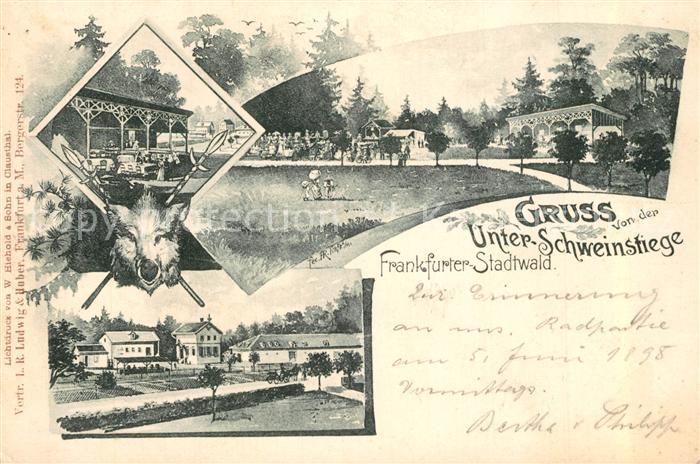 Lichtdruck von W. Hiehold & Sohn in Clausthal.
Vertr. L. R. Ludwig & Huber, Frankfurt a. M., Bergerstr. 124.
GRUSS
von der
Unter-Schweinstiege
Frankfurter-Stadtwald.
Zur Erinnerung
an uns. Radpartie
am 5. Juni 1898
Vormittags.
Bertha & Philipp
copyright protection